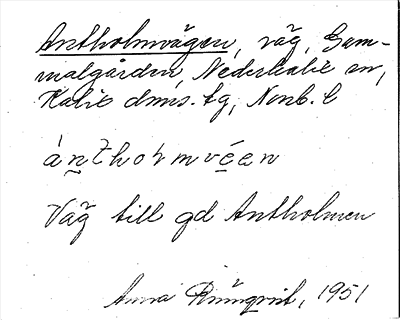 Antholmvägen, väg, Gam-
malgården, Nederkalix sn,
Kalix dms. tg, Nonb. l
ánthormvéen
Väg till gd Antholmen
Anna Rönnqvist, 1951